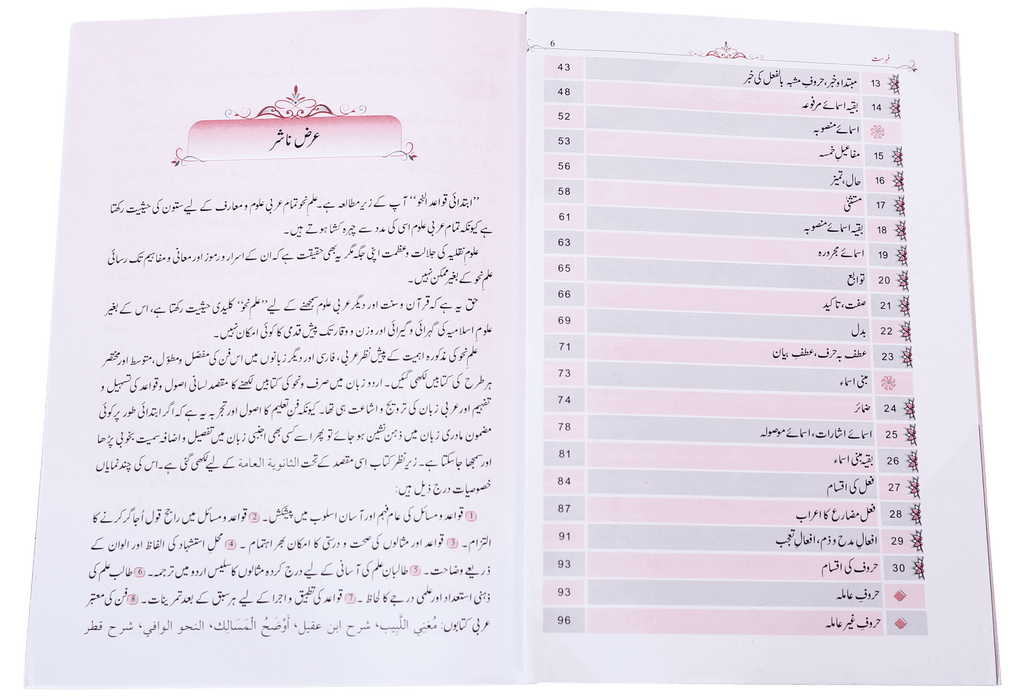 فہرست 6
13 مبتدا و خبر، حروفِ مشبہ بالفعل کی خبر 43
14 بقیہ اسمائے مرفوعہ 48
اسمائے منصوبہ 52
15 مفاعیلِ خمسہ 53
16 حال، تمیز 56
17 مستثنیٰ 58
18 بقیہ اسمائے منصوبہ 61
19 اسمائے مجرورہ 63
20 توابع 65
21 صفت، تاکید 66
22 بدل 69
23 عطف بہ حرف، عطف بیان 71
مبنی اسماء 73
24 ضمائر 74
25 اسمائے اشارات، اسمائے موصولہ 78
26 بقیہ مبنی اسماء 81
27 فعل کی اقسام 84
28 فعل مضارع کا اعراب 87
29 افعالِ مدح و ذم، افعالِ تعجب 91
30 حروف کی اقسام 93
حروفِ عاملہ 93
حروفِ غیر عاملہ 96
عرض ناشر
’’ابتدائی قواعد النحو‘‘ آپ کے زیرِ مطالعہ ہے۔ علم نحو تمام عربی علوم و معارف کے لیے ستون کی حیثیت رکھتا
ہے کیونکہ تمام عربی علوم اسی کی مدد سے چہرہ کشا ہوتے ہیں۔
علوم نقلیہ کی جلالت و عظمت اپنی جگہ مگر یہ بھی حقیقت ہے کہ ان کے اسرار و رموز اور معانی و مفاہیم تک رسائی
علم نحو کے بغیر ممکن نہیں۔
حق یہ ہے کہ قرآن و سنت اور دیگر عربی علوم سمجھنے کے لیے ’’علم نحو‘‘ کلیدی حیثیت رکھتا ہے، اس کے بغیر
علوم اسلامیہ کی گہرائی و گیرائی اور وزن و وقار تک پیش قدمی کا کوئی امکان نہیں۔
علم نحو کی مذکورہ اہمیت کے پیش نظر عربی، فارسی اور دیگر زبانوں میں اس فن کی مفصّل و مطوّل، متوسط اور مختصر
ہر طرح کی کتابیں لکھی گئیں۔ اردو زبان میں صرف و نحو کی کتابیں لکھنے کا مقصد لسانی اصول و قواعد کی تسہیل و
تفہیم اور عربی زبان کی ترویج و اشاعت ہی تھا۔ کیونکہ فن تعلیم کا اصول اور تجربہ یہ ہے کہ اگر ابتدائی طور پر کوئی
مضمون مادری زبان میں ذہن نشین ہو جائے تو پھر اسے کسی بھی اجنبی زبان میں تفصیل و اضافہ سمیت بخوبی پڑھا
اور سمجھا جاسکتا ہے۔ زیرِ نظر کتاب اسی مقصد کے تحت الثانویة العامة کے لیے لکھی گئی ہے۔ اس کی چند نمایاں
خصوصیات درج ذیل ہیں:
1 قواعد و مسائل کی عام فہم اور آسان اسلوب میں پیشکش۔ 2 قواعد و مسائل میں راجح قول اُجاگر کرنے کا
التزام۔ 3 قواعد اور مثالوں کی صحت و درستی کا امکان بھر اہتمام۔ 4 محل استشہاد کی الفاظ اور الوان کے
ذریعے وضاحت۔ 5 طالبانِ علم کی آسانی کے لیے درج کردہ مثالوں کا سلیس اردو میں ترجمہ۔ 6 طالب علم کی
ذہنی استعداد اور علمی درجے کا لحاظ۔ 7 قواعد کی تطبیق و اجرا کے لیے ہر سبق کے بعد تمرینات۔ 8 فن کی معتبر
عربی کتابوں: مُغْنِي اللَّبِيب، شرح ابن عقيل، أَوْضَحُ الْمَسَالِك، النحو الوافي، شرح قطر